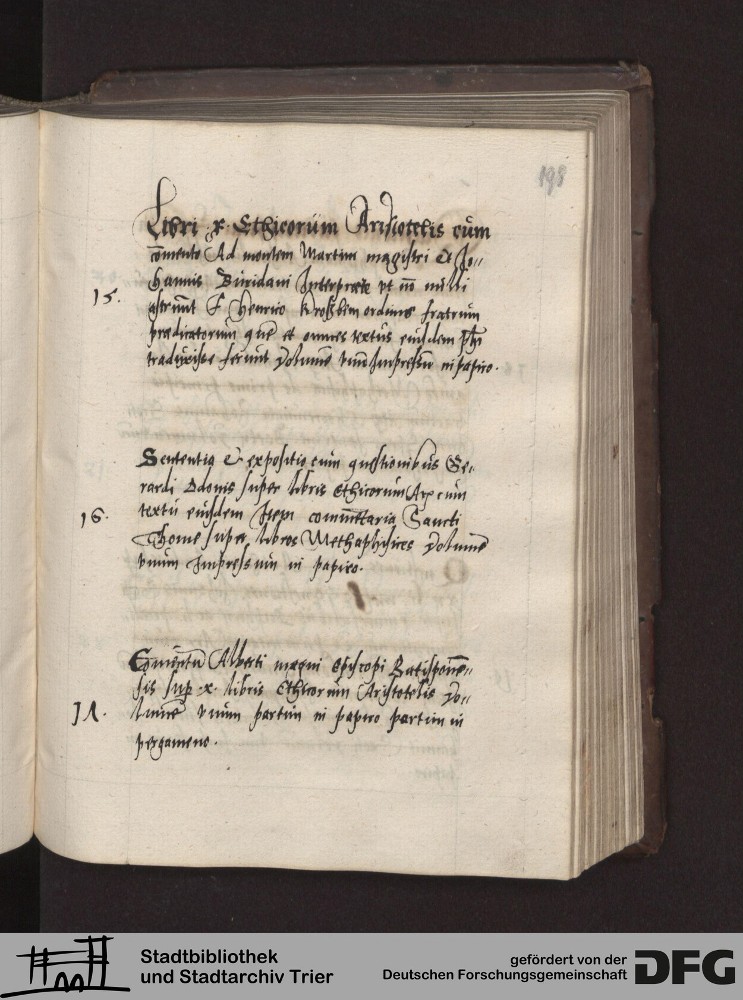 198
Libri x Ethicorum Aristotelis cum
comento Ad mentem Martini magistri et Jo„
hannis Buridani Interprete ut
15.
F Henrico ordinis fratrum
predicatorum quē et omnes textus eiusdem phi
ferunt Volumē unū Impressū in papiro.
Sententia & expositio cum questionibus Ge„
rardi Odonis super libris Ethicorum Ar cum
16.
textu eiusdem Item comentaria Sancti
Thome super libros Methaphisices Volumē
unum Impressum in papiro.
Comentū Alberti magni episcopi Ratisponē„
sis sup x. libris Ethicorum Aristotelis Vo„
17.
lumē unum partim in papiro partim in
pergameno.
Stadtbibliothek
und Stadtarchiv Trier
gefördert von der
Deutschen Forschungsgemeinschaft
DFG